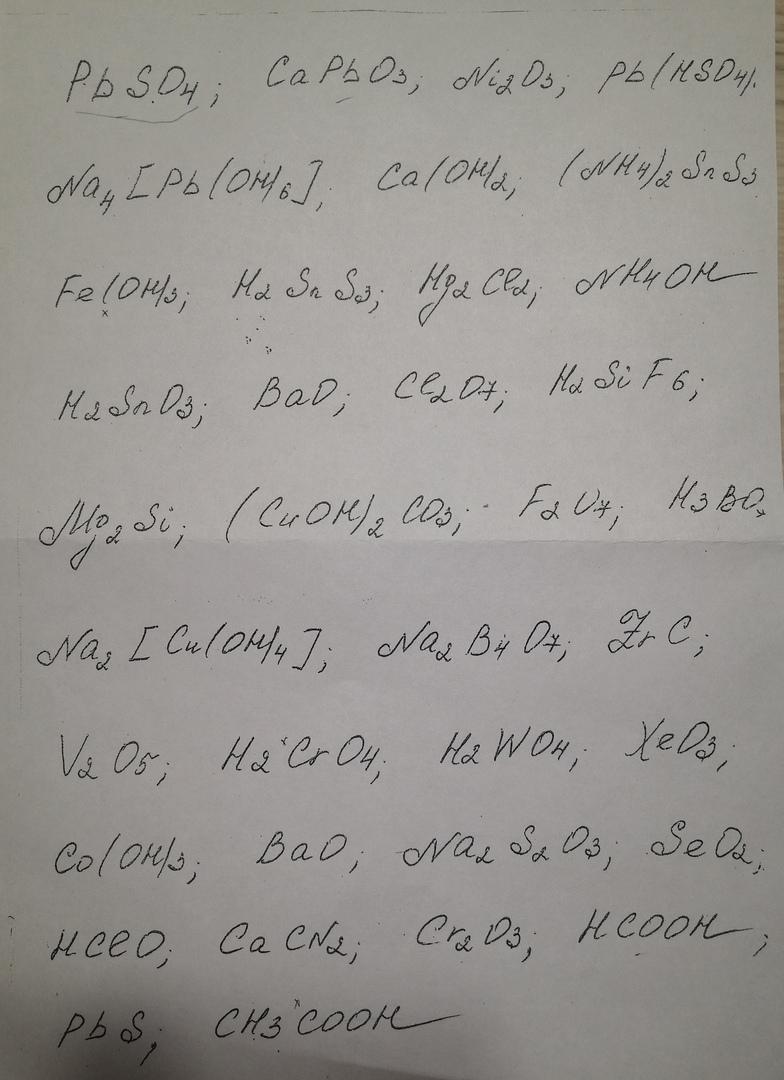 PbSO4; CaPbO3; Ni2O3; Pb(HSO4).
Na4[Pb(OH)6]; Ca(OH)2; (NH4)2SnS3
Fe(OH)3; H2SnS3; Hg2Cl2; NH4OH
H2SnO3; BaO; Cl2O7; H2SiF6;
Mg2Si; (CuOH)2CO3; F2O7; H3BO
Na2[Cu(OH)4]; Na2B4O7; ZrC;
V2O5; H2CrO4; H2WO4; XeO3;
Co(OH)3; BaO; Na2S2O3; SeO2;
HClO; CaCN2; Cr2O3; HCOOH;
PbS; CH3COOH